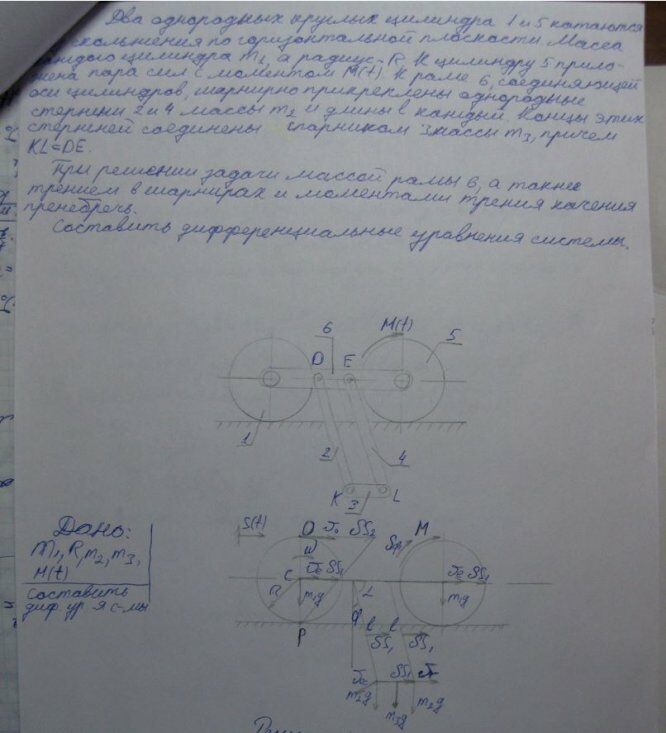 Два однородных круглых цилиндра 1 и 5 катаются
скольжения по горизонтальной плоскости. Масса
каждого цилиндра m₁, а радиус - R. К цилиндру 5 прило-
жена пара сил с моментом M(t). К раме 6, соединяющей
оси цилиндров, шарнирно прикреплены однородные
стержни 2 и 4 массы m₂ и длины l каждый. Концы этих
стержней соединены спарником 3 массы m₃, причем
KL=DE.
При решении задачи массой рамы 6, а также
трением в шарнирах и моментами трения качения
пренебречь.
Составить дифференциальные уравнения системы.
6 M(t)
5
D E
1
2 4
K 3 L
Дано:
m₁, R, m₂, m₃,
M(t)
Составить
диф. ур-я с-мы
S(t)
D M
ω
C δS₁
R m₁g m₁g
P φ
l l
δS₁ δS₁
δS₁
m₂g m₃g m₂g